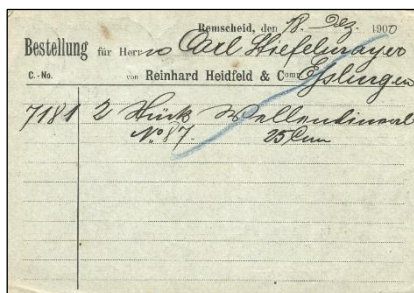 Remscheid, den 18. Dez. 1900
Bestellung für Herrn Carl Stiefelmayer
C.-No. von Reinhard Heidfeld & Comp. Esslingen
7181 2 Stück
No 87. 25 Cm